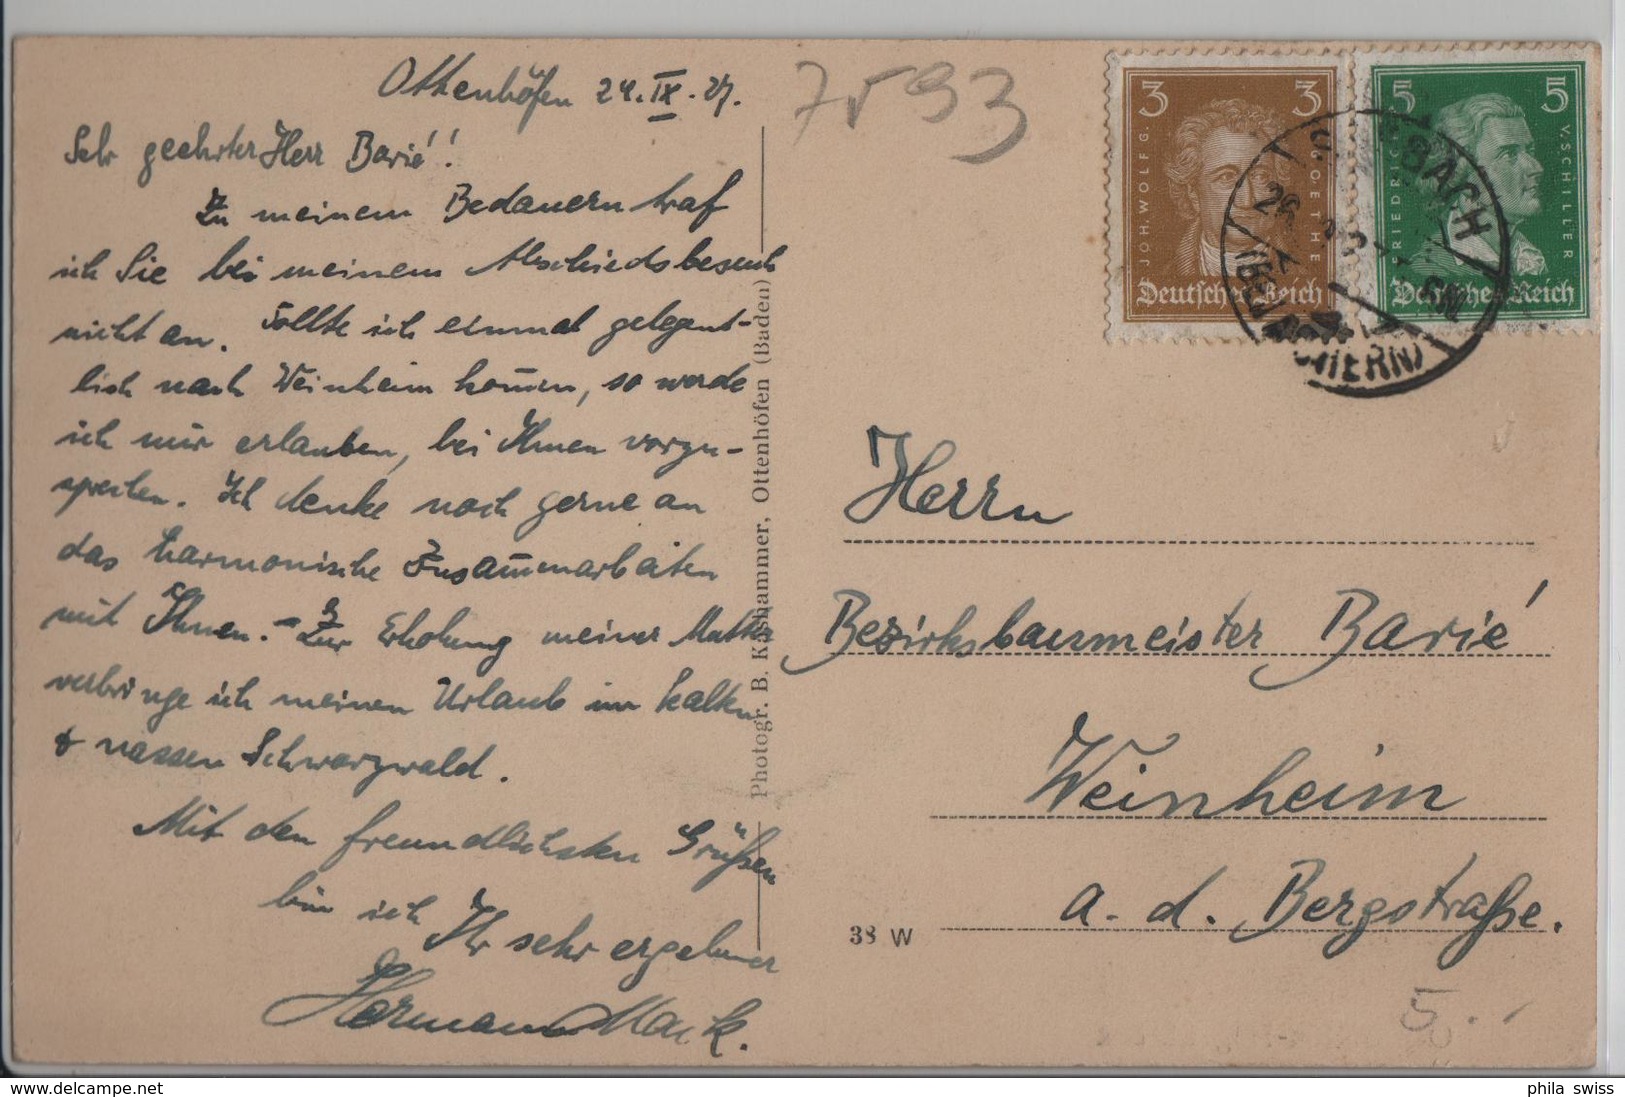 Ottenhöfen 24.IX.27.
Sehr geehrter Herr Barié!
Zu meinem Bedauern traf
ich Sie bei meinem Abschiedsbesuch
nicht an. Sollte ich einmal gelegent-
lich nach Weinheim kom̄en, so werde
ich mir erlauben, bei Ihnen vorzu-
sprechen. Ich denke noch gerne an
das harmonische Zusam̄enarbeiten
mit Ihnen. - Zur Erholung meiner Mutter
verbringe ich meinen Urlaub im kalten
& nassen Schwarzwald.
Mit den freundlichsten Grüßen
bin ich
Ihr sehr ergebener
Hermann Mack.
Photogr. B. Kashammer, Ottenhöfen (Baden)
7593
3 3
JOH. WOLFG. V. GOETHE
Deutsches Reich
5 5
FRIEDRICH V. SCHILLER
Deutsches Reich
(ACHERN)
Herrn
Bezirksbaumeister Barié
Weinheim
a. d. Bergstraße.
38 W
5.
www.delcampe.net
phila_swiss